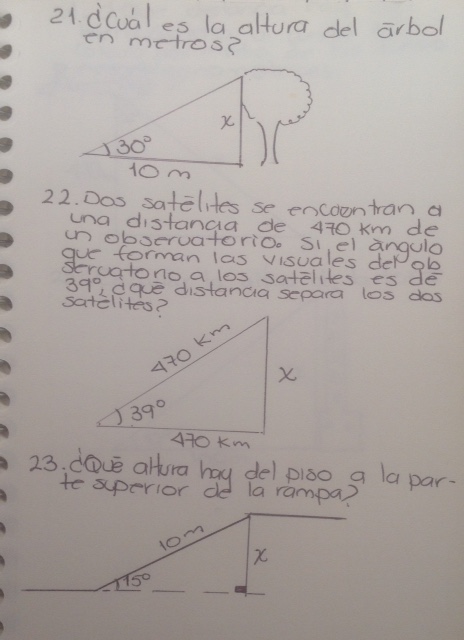 21. ¿Cuál es la altura del árbol
en metros?
x
30°
10 m
22. Dos satélites se encoontran a
una distancia de 470 km de
un observatorio. Si el ángulo
que forman las visuales del ob
servatorio a los satélites es de
39°, ¿qué distancia separa los dos
satélites?
470 km
x
39°
470 km
23. ¿Qué altura hay del piso a la par-
te superior de la rampa?
10 m
x
15°